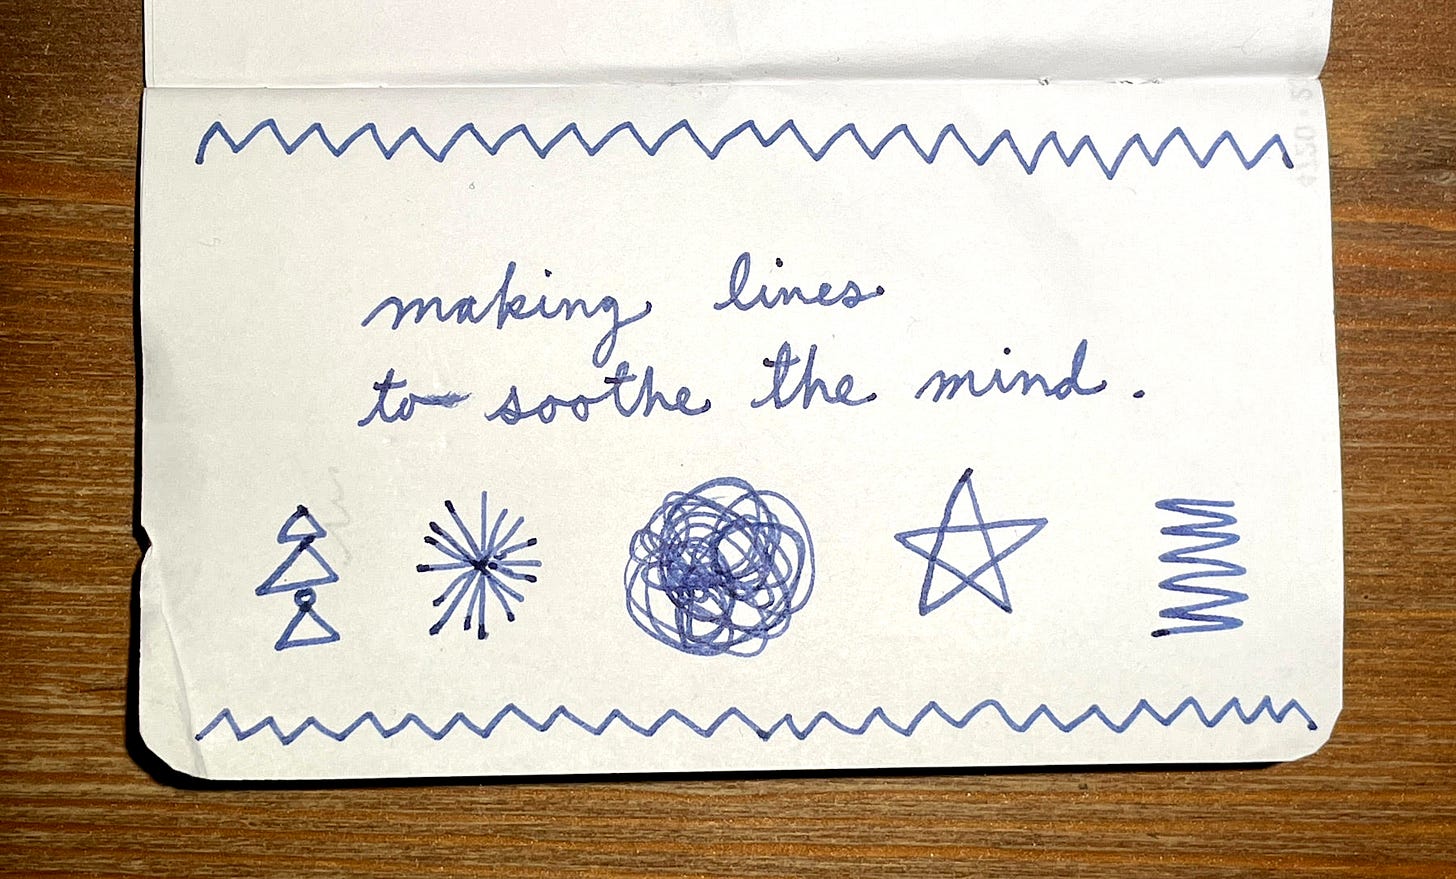 making lines
to soothe the mind.